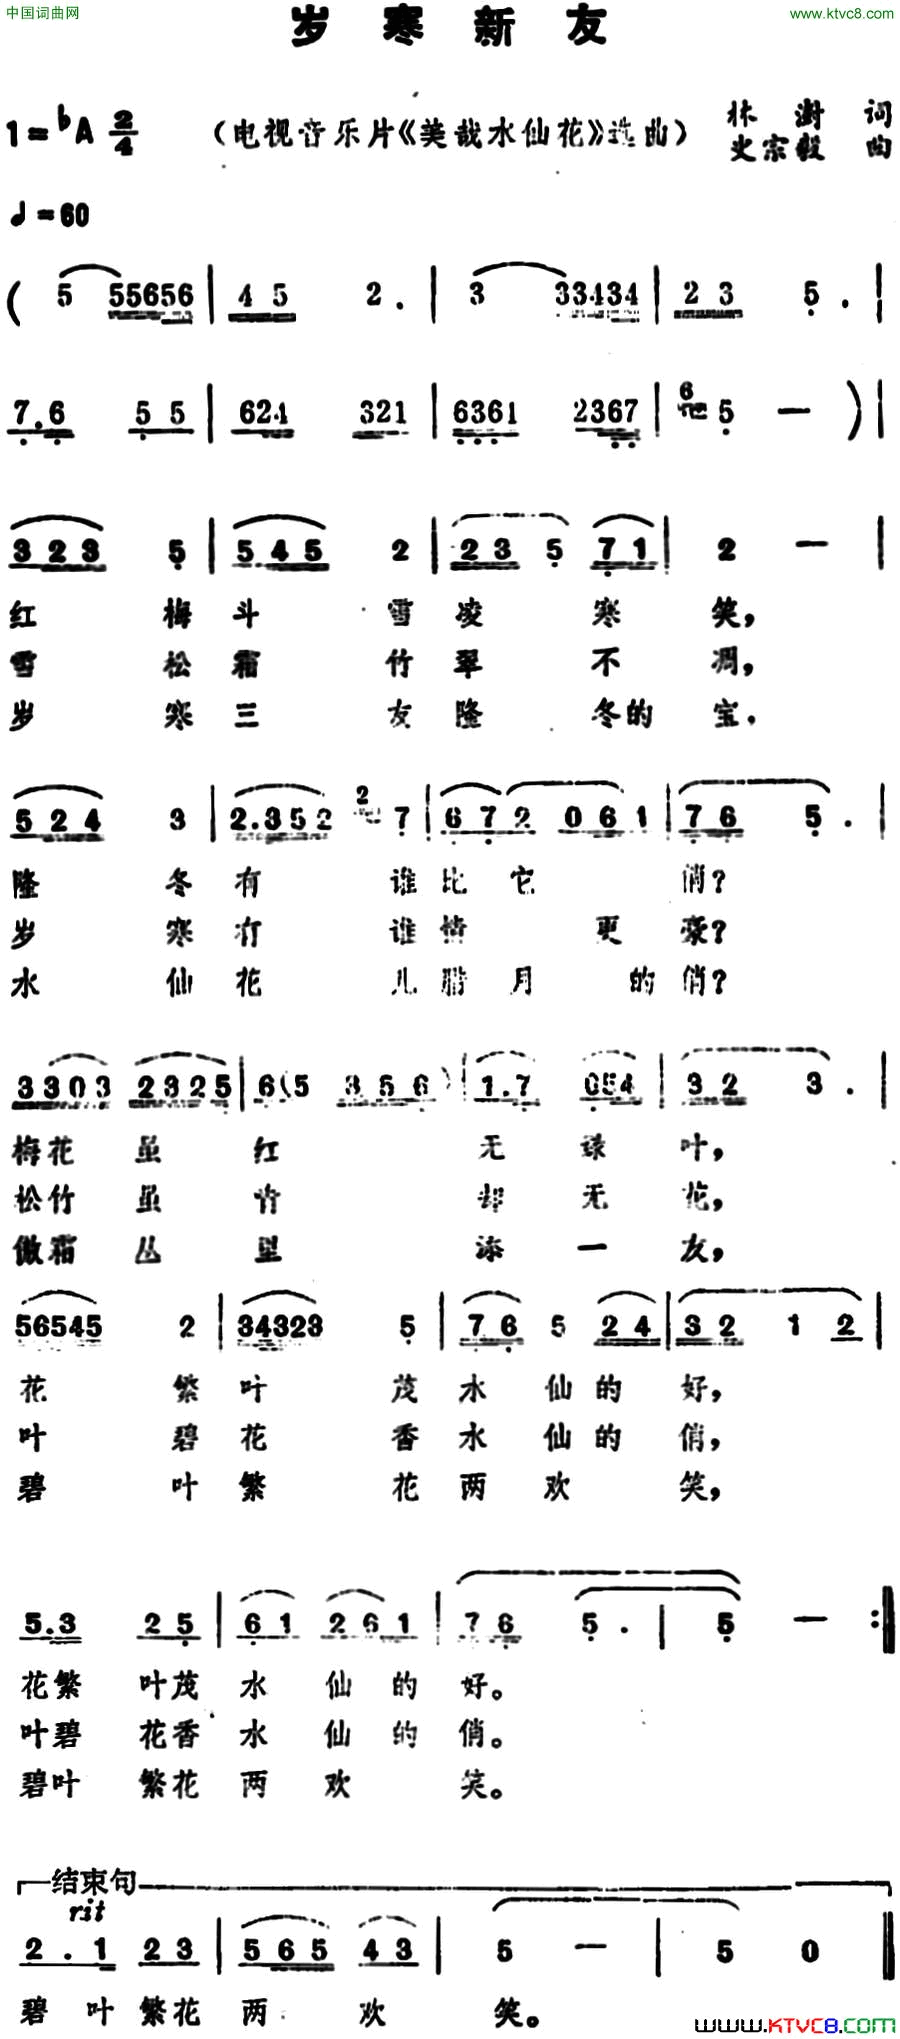 中国词曲网
www.ktvc8.com
岁寒新友
1=♭A 2/4 (电视音乐片《美哉水仙花》选曲) 林澍 词
史宗毅 曲
♩=60
( 5 55656 | 45 2. | 3 33434 | 23 5. |
7.6 55 | 624 321 | 6361 2367 | 6 5 — ) |
323 5 | 545 2 | 23 5 71 | 2 — |
红 梅 斗 雪 凌 寒 笑,
雪 松 霜 竹 翠 不 凋,
岁 寒 三 友 隆 冬的 宝.
524 3 | 2.352 2 7 | 67 2 061 | 76 5. |
隆 冬 有 谁 比 它 俏?
岁 寒 有 谁 情 更 豪?
水 仙 花 儿 腊 月 的 俏?
3303 2325 | 6(5 356) | 1.7 054 | 32 3. |
梅花 虽 红 无 绿 叶,
松竹 虽 青 却 无 花,
傲霜 丛 里 添 一 友,
56545 2 | 34323 5 | 76 5 24 | 32 1 2 |
花 繁 叶 茂 水 仙 的 好,
叶 碧 花 香 水 仙 的 俏,
碧 叶 繁 花 两 欢 笑,
5.3 25 | 61 261 | 76 5. | 5 — :|
花繁 叶茂 水 仙 的 好。
叶碧 花香 水 仙 的 俏。
碧叶 繁花 两 欢 笑。
结束句
rit
2.1 23 | 565 43 | 5 — | 5 0 |
碧 叶 繁花 两 欢 笑。
www.KTVC8.com